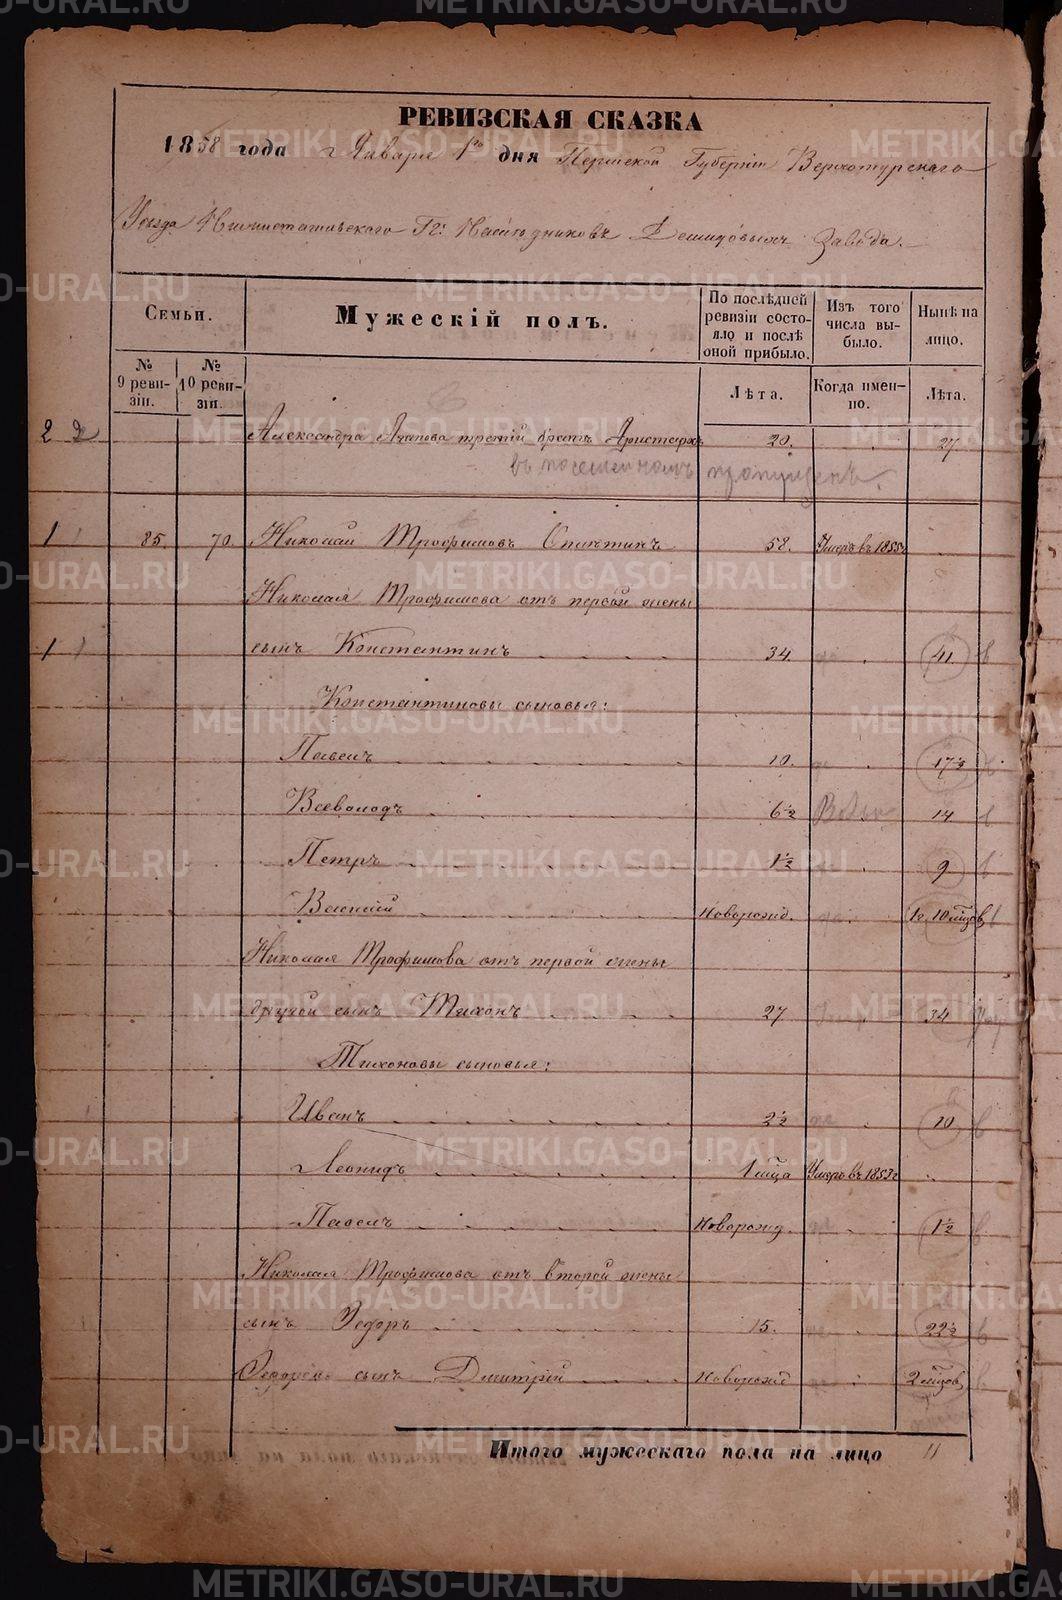 METRIKI.GASO-URAL.RU
РЕВИЗСКАЯ СКАЗКА
1858 года Января 1го дня Пермской Губерніи Верхотурскаго
Уѣзда Нижнетагильскаго Гг. Наслѣдниковъ Демидовыхъ Завода.
Семьи.
Мужескій полъ.
По послѣдней ревизіи состояло и послѣ оной прибыло.
Изъ того числа выбыло.
Нынѣ на лицо.
№ 9 ревизіи.
№ 10 ревизіи.
Лѣта.
Когда именно.
Лѣта.
2 2 Александра третій братъ Аристархъ 20. 27
въ посемейномъ пропущенъ.
1 85. 70. Николай Трофимовъ 58. Умеръ въ 1855г
Николая Трофимова отъ первой жены
1 сынъ Константинъ 34. 41.
Константиновы сыновья:
Павелъ 10. 17½
Всеволодъ 6½ 14
Петръ 1½ 9
Василій Новорожд. 1г. 10 мцов
Николая Трофимова отъ первой жены
другой сынъ Тихонъ 27 34
Тихоновы сыновья:
Иванъ 2½ 10
Леонидъ 1 мца Умеръ въ 1853г
Павелъ Новорожд. 1½
Николая Трофимова отъ второй жены
сынъ Федоръ 15. 22½
Федоровъ сынъ Дмитрій Новорожд 2 мцов
Итого мужескаго пола на лицо 11